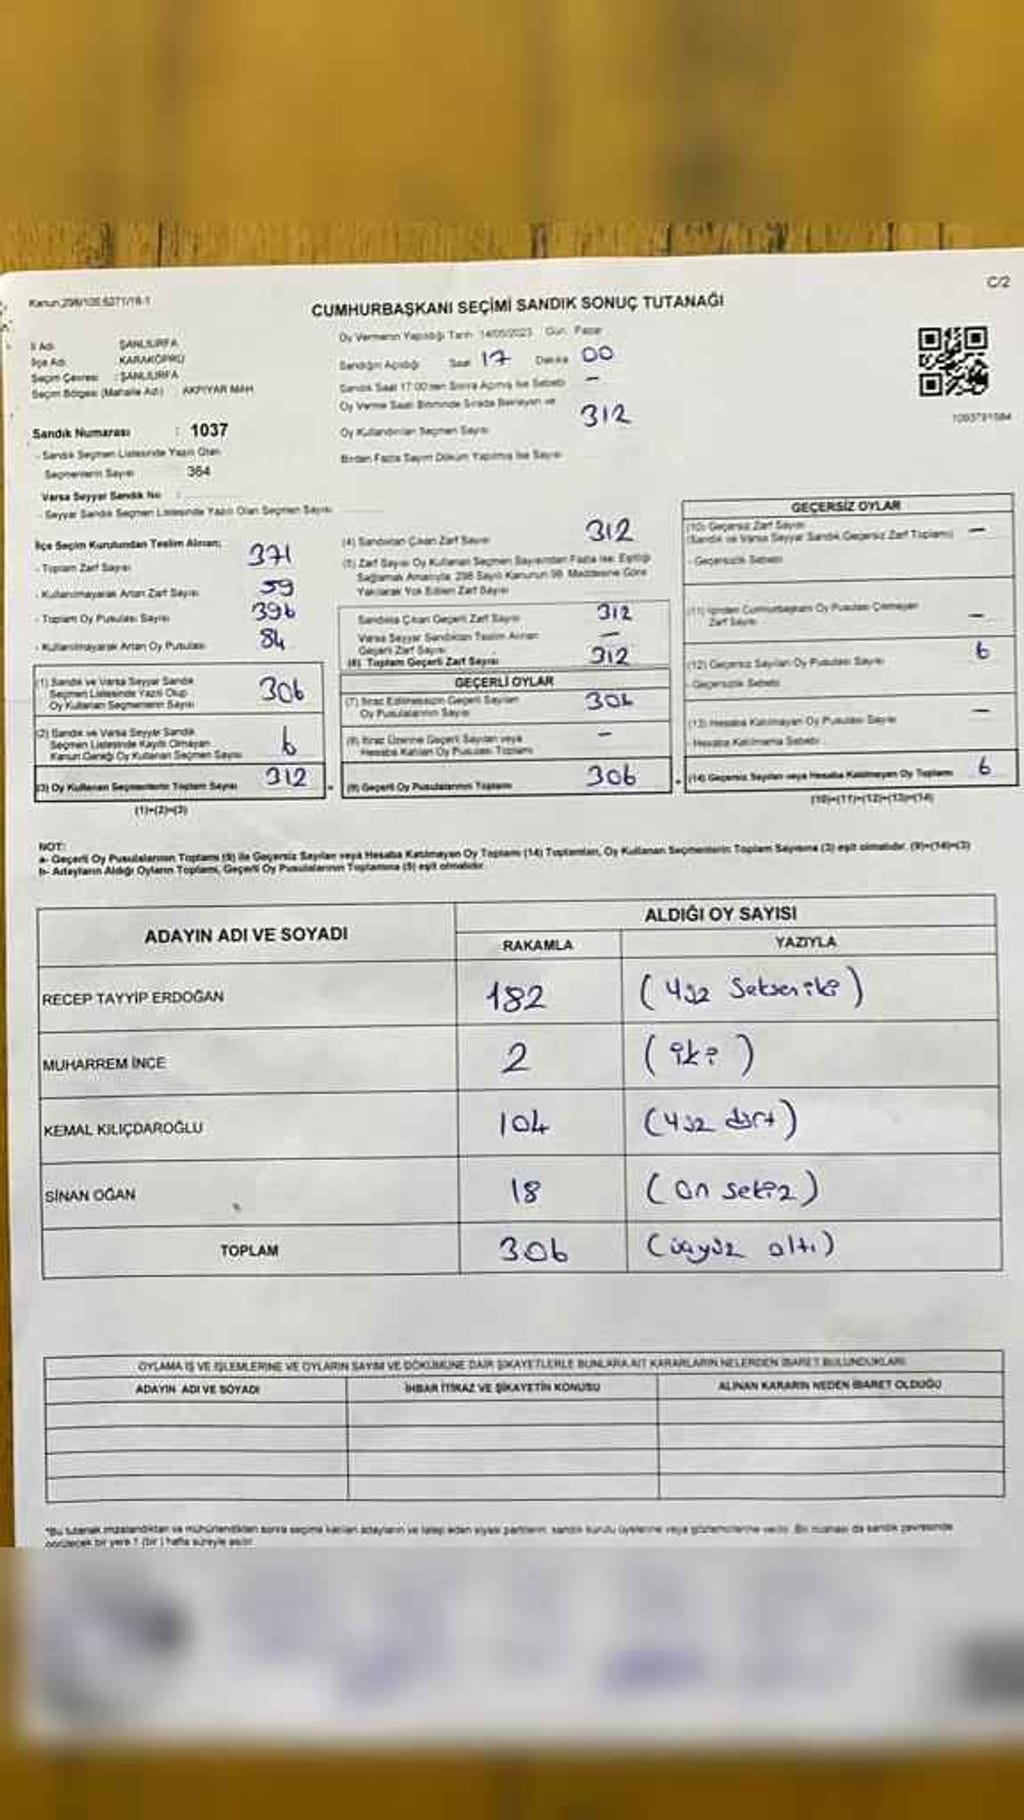 Kanun:298/105 6271/18-1
C/2
CUMHURBAŞKANI SEÇİMİ SANDIK SONUÇ TUTANAĞI
İl Adı : ŞANLIURFA
İlçe Adı : KARAKÖPRÜ
Seçim Çevresi : ŞANLIURFA
Seçim Bölgesi (Mahalle Adı) : AKPIYAR MAH
Sandık Numarası : 1037
- Sandık Seçmen Listesinde Yazılı Olan
Seçmenlerin Sayısı : 364
Varsa Seyyar Sandık No :
- Seyyar Sandık Seçmen Listesinde Yazılı Olan Seçmen Sayısı
Oy Vermenin Yapıldığı Tarih 14/05/2023 Gün: Pazar
Sandığın Açıldığı Saat 17 Dakika 00
Sandık Saat 17:00'den Sonra Açılmış İse Sebebi –
Oy Verme Saati Bitiminde Sırada Bekleyen ve
Oy Kullandırılan Seçmen Sayısı 312
Birden Fazla Sayım Döküm Yapılmış İse Sayısı
İlçe Seçim Kurulundan Teslim Alınan;
- Toplam Zarf Sayısı 371
- Kullanılmayarak Artan Zarf Sayısı 59
- Toplam Oy Pusulası Sayısı 396
- Kullanılmayarak Artan Oy Pusulası 84
(1) Sandık ve Varsa Seyyar Sandık
Seçmen Listesinde Yazılı Olup
Oy Kullanan Seçmenlerin Sayısı 306
(2) Sandık ve Varsa Seyyar Sandık
Seçmen Listesinde Kayıtlı Olmayan
Kanun Gereği Oy Kullanan Seçmen Sayısı 6
(3) Oy Kullanan Seçmenlerin Toplam Sayısı 312
(1)+(2)=(3)
(4) Sandıktan Çıkan Zarf Sayısı 312
(5) Zarf Sayısı Oy Kullanan Seçmen Sayısından Fazla İse; Eşitliği
Sağlamak Amacıyla, 298 Sayılı Kanunun 98. Maddesine Göre
Yakılarak Yok Edilen Zarf Sayısı
Sandıkta Çıkan Geçerli Zarf Sayısı 312
Varsa Seyyar Sandıktan Teslim Alınan
Geçerli Zarf Sayısı –
(6) Toplam Geçerli Zarf Sayısı 312
GEÇERLİ OYLAR
(7) İtiraz Edilmeksizin Geçerli Sayılan
Oy Pusulalarının Sayısı 306
(8) İtiraz Üzerine Geçerli Sayılan veya
Hesaba Katılan Oy Pusulası Toplamı –
(9) Geçerli Oy Pusulalarının Toplamı 306
GEÇERSİZ OYLAR
(10) Geçersiz Zarf Sayısı
(Sandık ve Varsa Seyyar Sandık Geçersiz Zarf Toplamı) –
- Geçersizlik Sebebi
(11) İçinden Cumhurbaşkanı Oy Pusulası Çıkmayan
Zarf Sayısı –
(12) Geçersiz Sayılan Oy Pusulası Sayısı 6
- Geçersizlik Sebebi
(13) Hesaba Katılmayan Oy Pusulası Sayısı –
- Hesaba Katılmama Sebebi
(14) Geçersiz Sayılan veya Hesaba Katılmayan Oy Toplamı 6
(10)+(11)+(12)+(13)=(14)
NOT:
a- Geçerli Oy Pusulalarının Toplamı (9) ile Geçersiz Sayılan veya Hesaba Katılmayan Oy Toplamı (14) Toplamları, Oy Kullanan Seçmenlerin Toplam Sayısına (3) eşit olmalıdır. (9)+(14)=(3)
b- Adayların Aldığı Oyların Toplamı, Geçerli Oy Pusulalarının Toplamına (9) eşit olmalıdır.
ADAYIN ADI VE SOYADI
ALDIĞI OY SAYISI
RAKAMLA YAZIYLA
RECEP TAYYİP ERDOĞAN 182 (yüz seksen iki)
MUHARREM İNCE 2 (iki)
KEMAL KILIÇDAROĞLU 104 (yüz dört)
SİNAN OĞAN 18 (on sekiz)
TOPLAM 306 (üçyüz altı)
OYLAMA İŞ VE İŞLEMLERİNE VE OYLARIN SAYIM VE DÖKÜMÜNE DAİR ŞİKAYETLERLE BUNLARA AİT KARARLARIN NELERDEN İBARET BULUNDUKLARI
ADAYIN ADI VE SOYADI İHBAR İTİRAZ VE ŞİKAYETİN KONUSU ALINAN KARARIN NEDEN İBARET OLDUĞU
*Bu tutanak imzalandıktan ve mühürlendikten sonra seçime katılan adayların ve talep eden siyasi partilerin, sandık kurulu üyelerine veya gözlemcilerine verilir. Bir nüshası da sandık çevresinde
görülecek bir yere 1 (bir) hafta süreyle asılır.